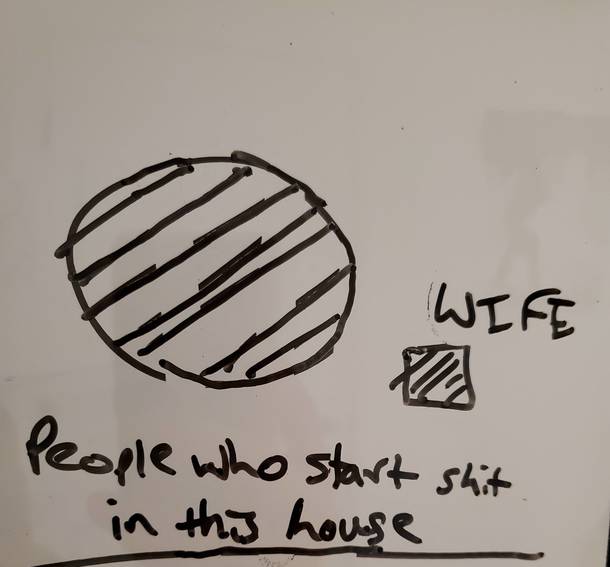 WIFE
People who start shit
in this house